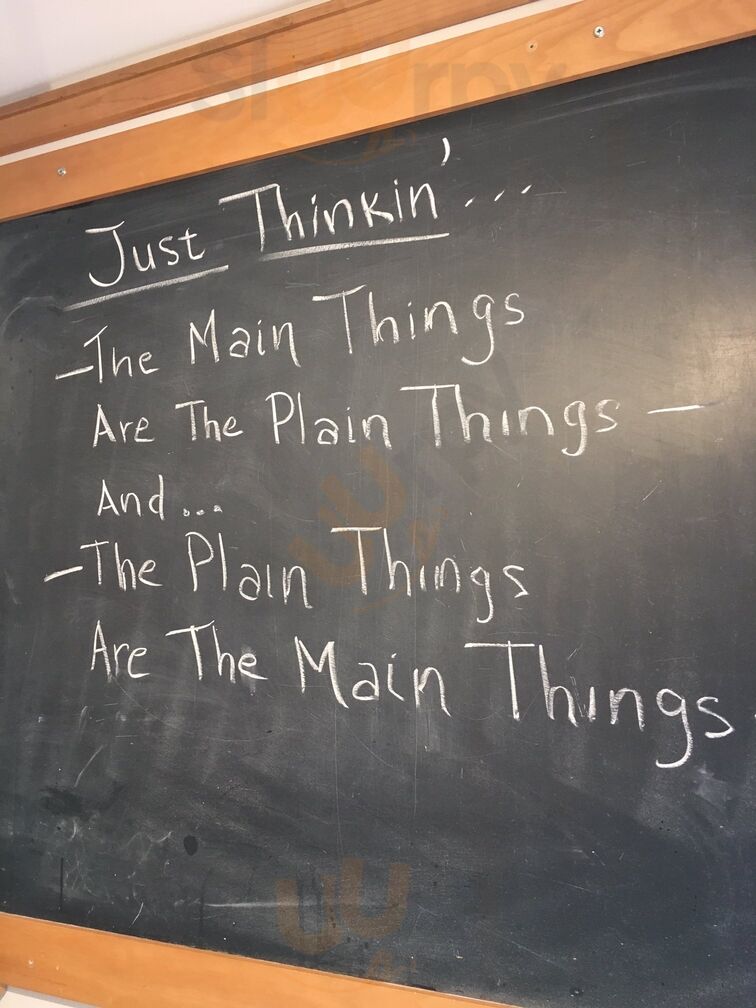 Just Thinkin'...
-The Main Things
Are The Plain Things -
And...
-The Plain Things
Are The Main Things